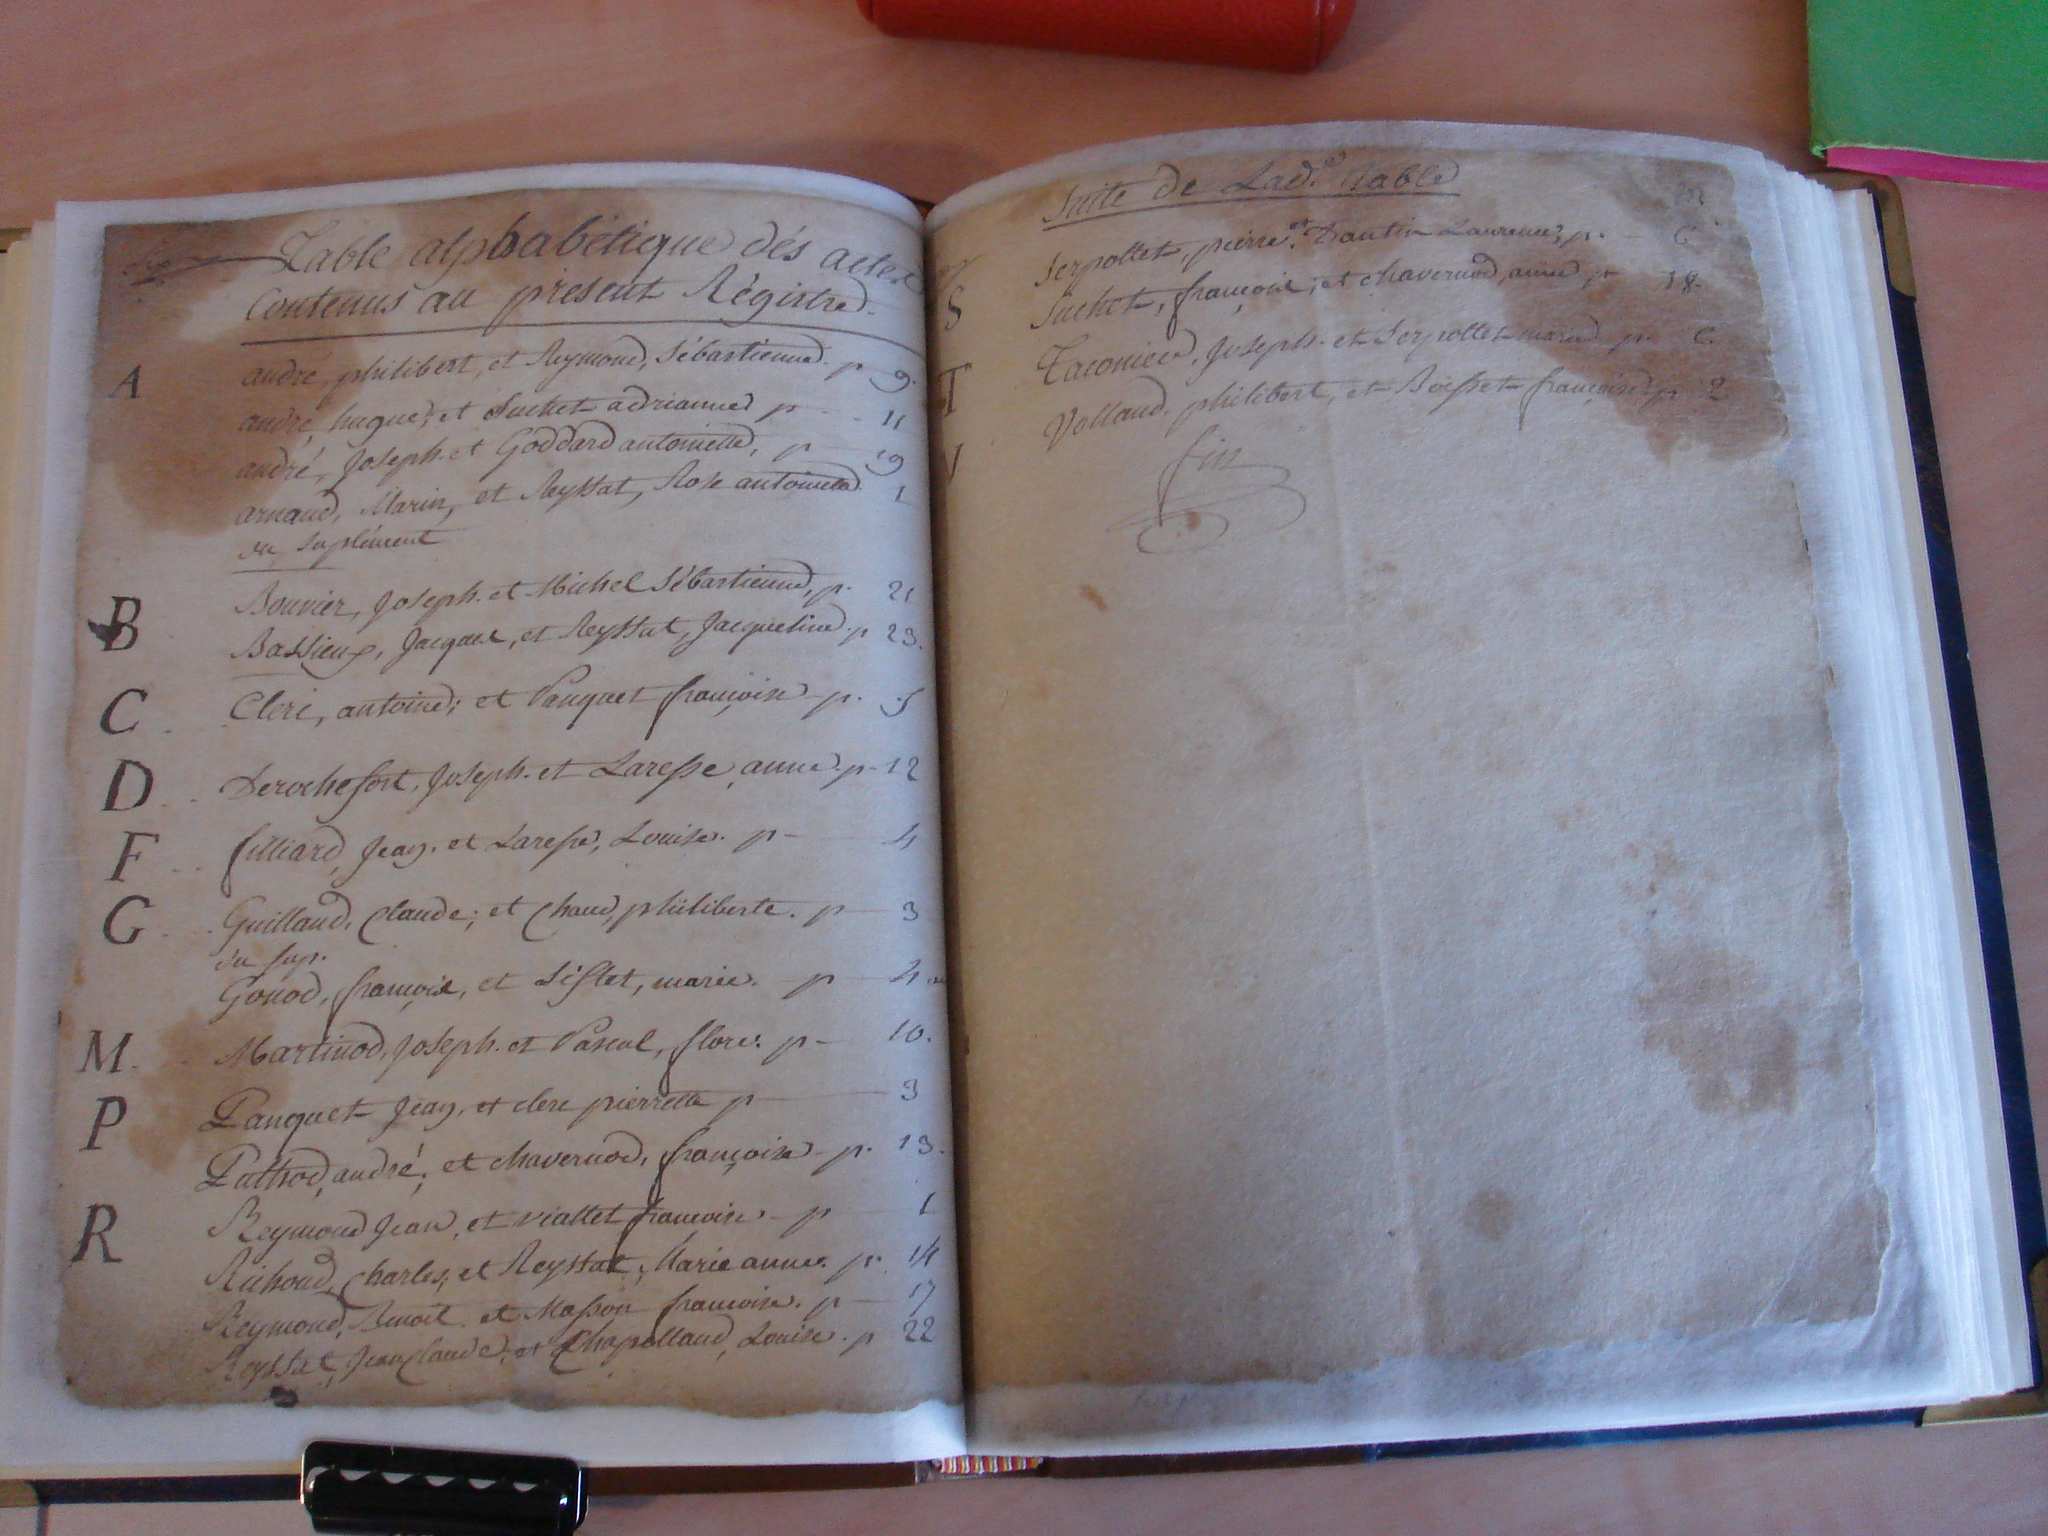 Table alphabétique dés actes
Contenus au présent Régistre.
A
andré, philibert, et Reymond, Sébastienne. p 9.
andré, hugue; et Suchet adrianne p - - 11
andré, Joseph. et Goddard antoinette, p - 19
arnaud, Marin, et Reyssat, Rose antoinette 1
du suplément
B
Bouvier, Joseph. et Michel Sébastienne, p. 21
B
Bassieux, Jacques, et Reyssat, Jacqueline. p 23.
C
Clerc, antoine; et Panquet françoise - p. 5
D
Derochefort, Joseph. et Laresse, anne. p - 12
F
filliard, Jean. et Laresse, Louise. p - 4
G
Guillaud, Claude; et Chaud, philiberte. p - 3
du sup.
Gonod, françois, et Sislet, marie. - p - 4
M.
Martinod, Joseph. et Pascal, flore. p - 10.
P
Panquet Jean, et clerc pierrette p - 3
Pathod, andré; et chavernod, françoise - p. 13.
R
Reymond Jean, et viallet françoise - p 1
Richoud, Charles; et Reyssat, Marie anne. p. 14
Reymond, Benoit. et Masson françoise. p - 17
Reyssat, Jean Claude; et Chapolland, Louise. p 22
Suite de Lad.e Table
S
Serpollet, pierre, et Dantin Laurence, p. - 6
Suchet, françois; et chavernod, anne p - 18.
T
Taconiere, Joseph. et Serpollet marie p. 6
V
Volland, philibert, et Boisset françoise p 2
fin